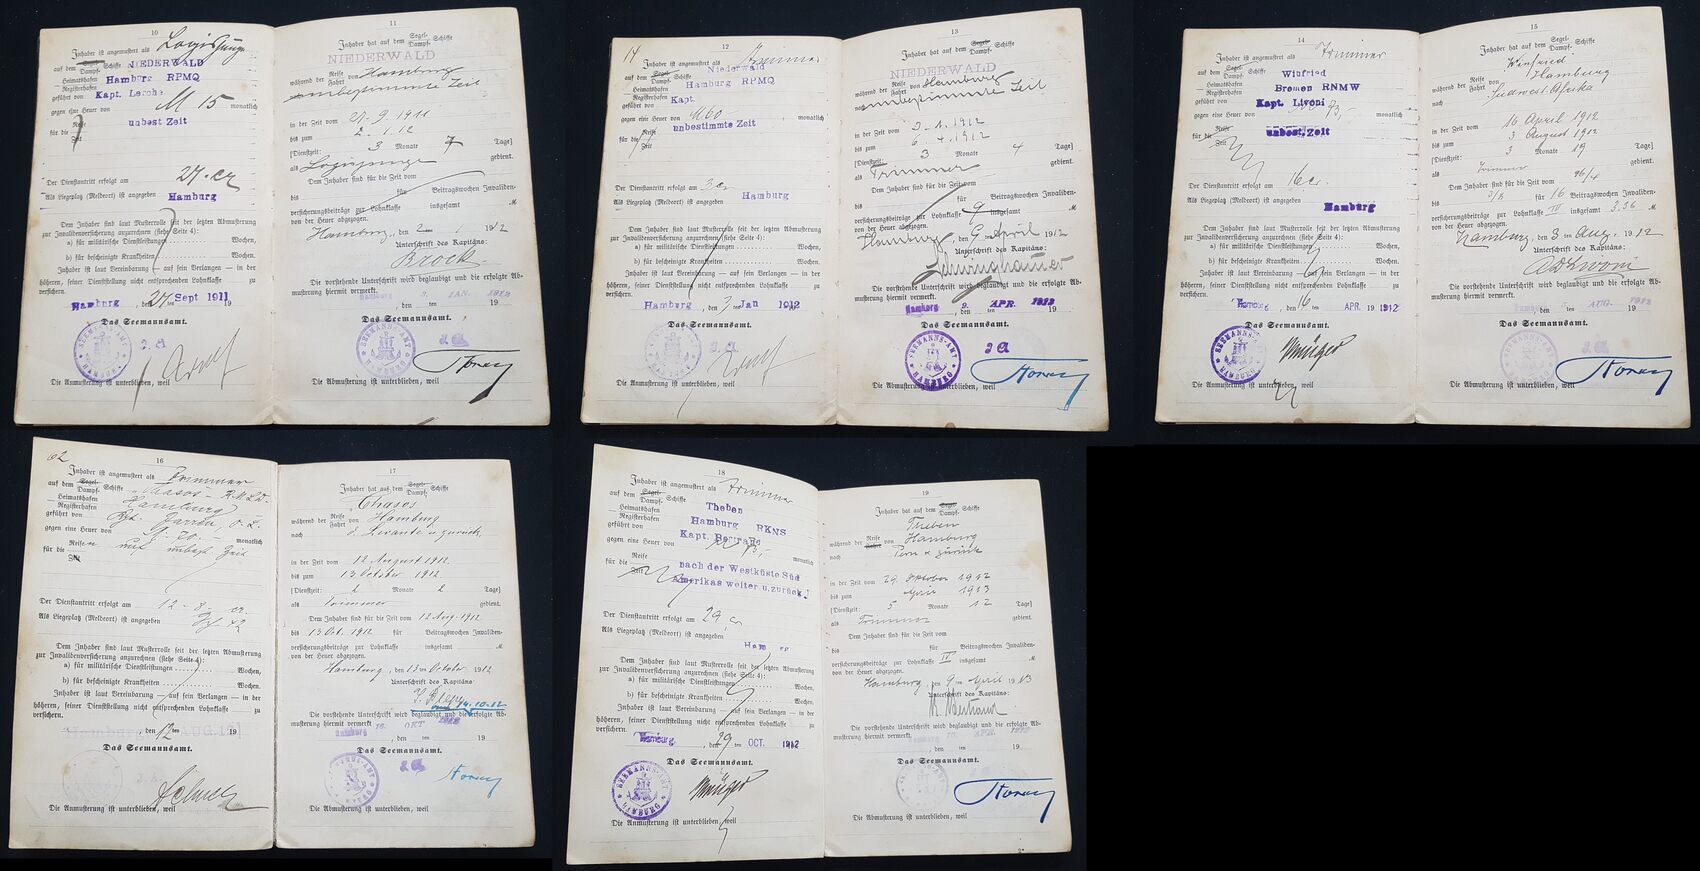 10
Inhaber ist angemustert als Logisjunge
auf dem Segel- Dampf- Schiffe NIEDERWALD
Heimatshafen Hamburg RPMQ
Registerhafen
geführt von Kapt. Lerche
gegen eine Heuer von M 15 monatlich
für die Reise Zeit unbest Zeit
Der Dienstantritt erfolgt am 27. cr
Als Liegeplatz (Meldeort) ist angegeben Hamburg
Dem Inhaber sind laut Musterrolle seit der letzten Abmusterung
zur Invalidenversicherung anzurechnen (siehe Seite 4):
a) für militärische Dienstleistungen Wochen,
b) für bescheinigte Krankheiten Wochen.
Inhaber ist laut Vereinbarung — auf sein Verlangen — in der
höheren, seiner Dienststellung nicht entsprechenden Lohnklasse zu
versichern.
Hamburg, den 27 Sept 1911 19
Das Seemannsamt.
SEEMANNS-AMT HAMBURG
J.A.
Die Anmusterung ist unterblieben, weil
11
Inhaber hat auf dem Segel- Dampf- Schiffe
NIEDERWALD
während der Reise Fahrt von Hamburg
unbestimmte Zeit
in der Zeit vom 27. 9. 1911
bis zum 2. 1. 12
[Dienstzeit: 3 Monate 7 Tage]
als Logisjunge gedient.
Dem Inhaber sind für die Zeit vom
bis für Beitragswochen Invaliden-
versicherungsbeiträge zur Lohnklasse insgesamt M
von der Heuer abgezogen.
Hamburg, den 2ten 1 1912
Unterschrift des Kapitäns:
Brock
Die vorstehende Unterschrift wird beglaubigt und die erfolgte Ab-
musterung hiermit vermerkt.
Hamburg 3. JAN. 1912
, den ten 19
Das Seemannsamt.
SEEMANNS-AMT HAMBURG
J.A.
Die Abmusterung ist unterblieben, weil
12
Inhaber ist angemustert als Trimmer
auf dem Segel- Dampf- Schiffe Niederwald
Heimatshafen Hamburg RPMQ
Registerhafen
geführt von Kapt.
gegen eine Heuer von M 60 monatlich
für die Reise Zeit unbestimmte Zeit
Der Dienstantritt erfolgt am 3 cr.
Als Liegeplatz (Meldeort) ist angegeben Hamburg
Dem Inhaber sind laut Musterrolle seit der letzten Abmusterung
zur Invalidenversicherung anzurechnen (siehe Seite 4):
a) für militärische Dienstleistungen Wochen,
b) für bescheinigte Krankheiten Wochen.
Inhaber ist laut Vereinbarung — auf sein Verlangen — in der
höheren, seiner Dienststellung nicht entsprechenden Lohnklasse zu
versichern.
Hamburg, den 3ten Jan 1912
Das Seemannsamt.
J.A.
Die Anmusterung ist unterblieben, weil
13
Inhaber hat auf dem Segel- Dampf- Schiffe
NIEDERWALD
während der Reise Fahrt von Hamburg
unbestimmte Zeit
in der Zeit vom 3. 1. 1912
bis zum 6. 4. 1912
[Dienstzeit: 3 Monate 4 Tage]
als Trimmer gedient.
Dem Inhaber sind für die Zeit vom
bis für Beitragswochen Invaliden-
versicherungsbeiträge zur Lohnklasse insgesamt M
von der Heuer abgezogen.
Hamburg, den 9ten April 1912
Unterschrift des Kapitäns:
Die vorstehende Unterschrift wird beglaubigt und die erfolgte Ab-
musterung hiermit vermerkt.
Hamburg 9. APR. 1912
, den ten 19
Das Seemannsamt.
SEEMANNS-AMT HAMBURG
J A
Die Abmusterung ist unterblieben, weil
14
Inhaber ist angemustert als Trimmer
auf dem Segel- Dampf- Schiffe Winfried
Heimatshafen Bremen RNMW
Registerhafen
geführt von Kapt. Livoni
gegen eine Heuer von 73,- monatlich
für die Reise Zeit unbest. Zeit
Der Dienstantritt erfolgt am 16 cr.
Als Liegeplatz (Meldeort) ist angegeben
Hamburg
Dem Inhaber sind laut Musterrolle seit der letzten Abmusterung
zur Invalidenversicherung anzurechnen (siehe Seite 4):
a) für militärische Dienstleistungen Wochen,
b) für bescheinigte Krankheiten Wochen.
Inhaber ist laut Vereinbarung — auf sein Verlangen — in der
höheren, seiner Dienststellung nicht entsprechenden Lohnklasse zu
versichern.
Hamburg, den 16ten APR. 19 1912
Das Seemannsamt.
SEEMANNS-AMT HAMBURG
Die Anmusterung ist unterblieben, weil
15
Inhaber hat auf dem Segel- Dampf- Schiffe
Winfried
während der Reise Fahrt von Hamburg
nach Südwest-Afrika
in der Zeit vom 16 April 1912
bis zum 3 August 1912
[Dienstzeit: 3 Monate 19 Tage]
als Trimmer gedient.
Dem Inhaber sind für die Zeit vom
bis für 16 Beitragswochen Invaliden-
versicherungsbeiträge zur Lohnklasse IV insgesamt 3.36 M
von der Heuer abgezogen.
Hamburg, den 3ten Aug. 1912
Unterschrift des Kapitäns:
Die vorstehende Unterschrift wird beglaubigt und die erfolgte Ab-
musterung hiermit vermerkt.
AUG. 1912
, den ten 19
Das Seemannsamt.
Die Abmusterung ist unterblieben, weil
16
Inhaber ist angemustert als Trimmer
auf dem Segel- Dampf- Schiffe
Heimatshafen Hamburg
Registerhafen
geführt von
gegen eine Heuer von 70.- monatlich
für die Reise Zeit auf unbest. Zeit
Der Dienstantritt erfolgt am 12 - 8 - cr
Als Liegeplatz (Meldeort) ist angegeben
Dem Inhaber sind laut Musterrolle seit der letzten Abmusterung
zur Invalidenversicherung anzurechnen (siehe Seite 4):
a) für militärische Dienstleistungen Wochen,
b) für bescheinigte Krankheiten Wochen.
Inhaber ist laut Vereinbarung — auf sein Verlangen — in der
höheren, seiner Dienststellung nicht entsprechenden Lohnklasse zu
versichern.
Hamburg, den 12ten AUG.12 19
Das Seemannsamt.
J.A.
Die Anmusterung ist unterblieben, weil
17
Inhaber hat aus dem Segel- Dampf- Schiffe
Chasos
während der Reise Fahrt von Hamburg
nach d. Levante u. zurück,
in der Zeit vom 12 August 1912.
bis zum 13 October 1912.
[Dienstzeit: 2 Monate 2 Tage]
als Trimmer gedient.
Dem Inhaber sind für die Zeit vom 12 Aug. 1912
bis 13 Oct. 1912 für Beitragswochen Invaliden-
versicherungsbeiträge zur Lohnklasse insgesamt M
von der Heuer abgezogen.
Hamburg, den 13ten October 1912
Unterschrift des Kapitäns:
14.10.12
Die vorstehende Unterschrift wird beglaubigt und die erfolgte Ab-
musterung hiermit vermerkt.
Hamburg 16. OKT 1912
, den ten 19
Das Seemannsamt.
SEEMANNS-AMT HAMBURG
J.A.
Die Abmusterung ist unterblieben, weil
18
Inhaber ist angemustert als Trimmer
auf dem Segel- Dampf- Schiffe Theben
Heimatshafen Hamburg RKNS
Registerhafen
geführt von Kapt. Bertrand
gegen eine Heuer von 73,- monatlich
für die Reise Zeit nach der Westküste Süd
Amerikas weiter u. zurück
Der Dienstantritt erfolgt am 29 cr
Als Liegeplatz (Meldeort) ist angegeben
Dem Inhaber sind laut Musterrolle seit der letzten Abmusterung
zur Invalidenversicherung anzurechnen (siehe Seite 4):
a) für militärische Dienstleistungen Wochen,
b) für bescheinigte Krankheiten Wochen.
Inhaber ist laut Vereinbarung — auf sein Verlangen — in der
höheren, seiner Dienststellung nicht entsprechenden Lohnklasse zu
versichern.
Hamburg, den 29ten OCT. 1912
Das Seemannsamt.
SEEMANNS-AMT HAMBURG
Die Anmusterung ist unterblieben, weil
19
Inhaber hat auf dem Segel- Dampf- Schiffe
Theben
während der Reise Fahrt von Hamburg
nach Peru u zurück
in der Zeit vom 29. Oktober 1912
bis zum April 1913
[Dienstzeit: 5 Monate 12 Tage]
als Trimmer gedient.
Dem Inhaber sind für die Zeit vom
bis für Beitragswochen Invaliden-
versicherungsbeiträge zur Lohnklasse IV insgesamt M
von der Heuer abgezogen.
Hamburg, den 9ten April 1913
Unterschrift des Kapitäns:
Die vorstehende Unterschrift wird beglaubigt und die erfolgte Ab-
musterung hiermit vermerkt.
, den ten 19
Das Seemannsamt.
Die Abmusterung ist unterblieben, weil